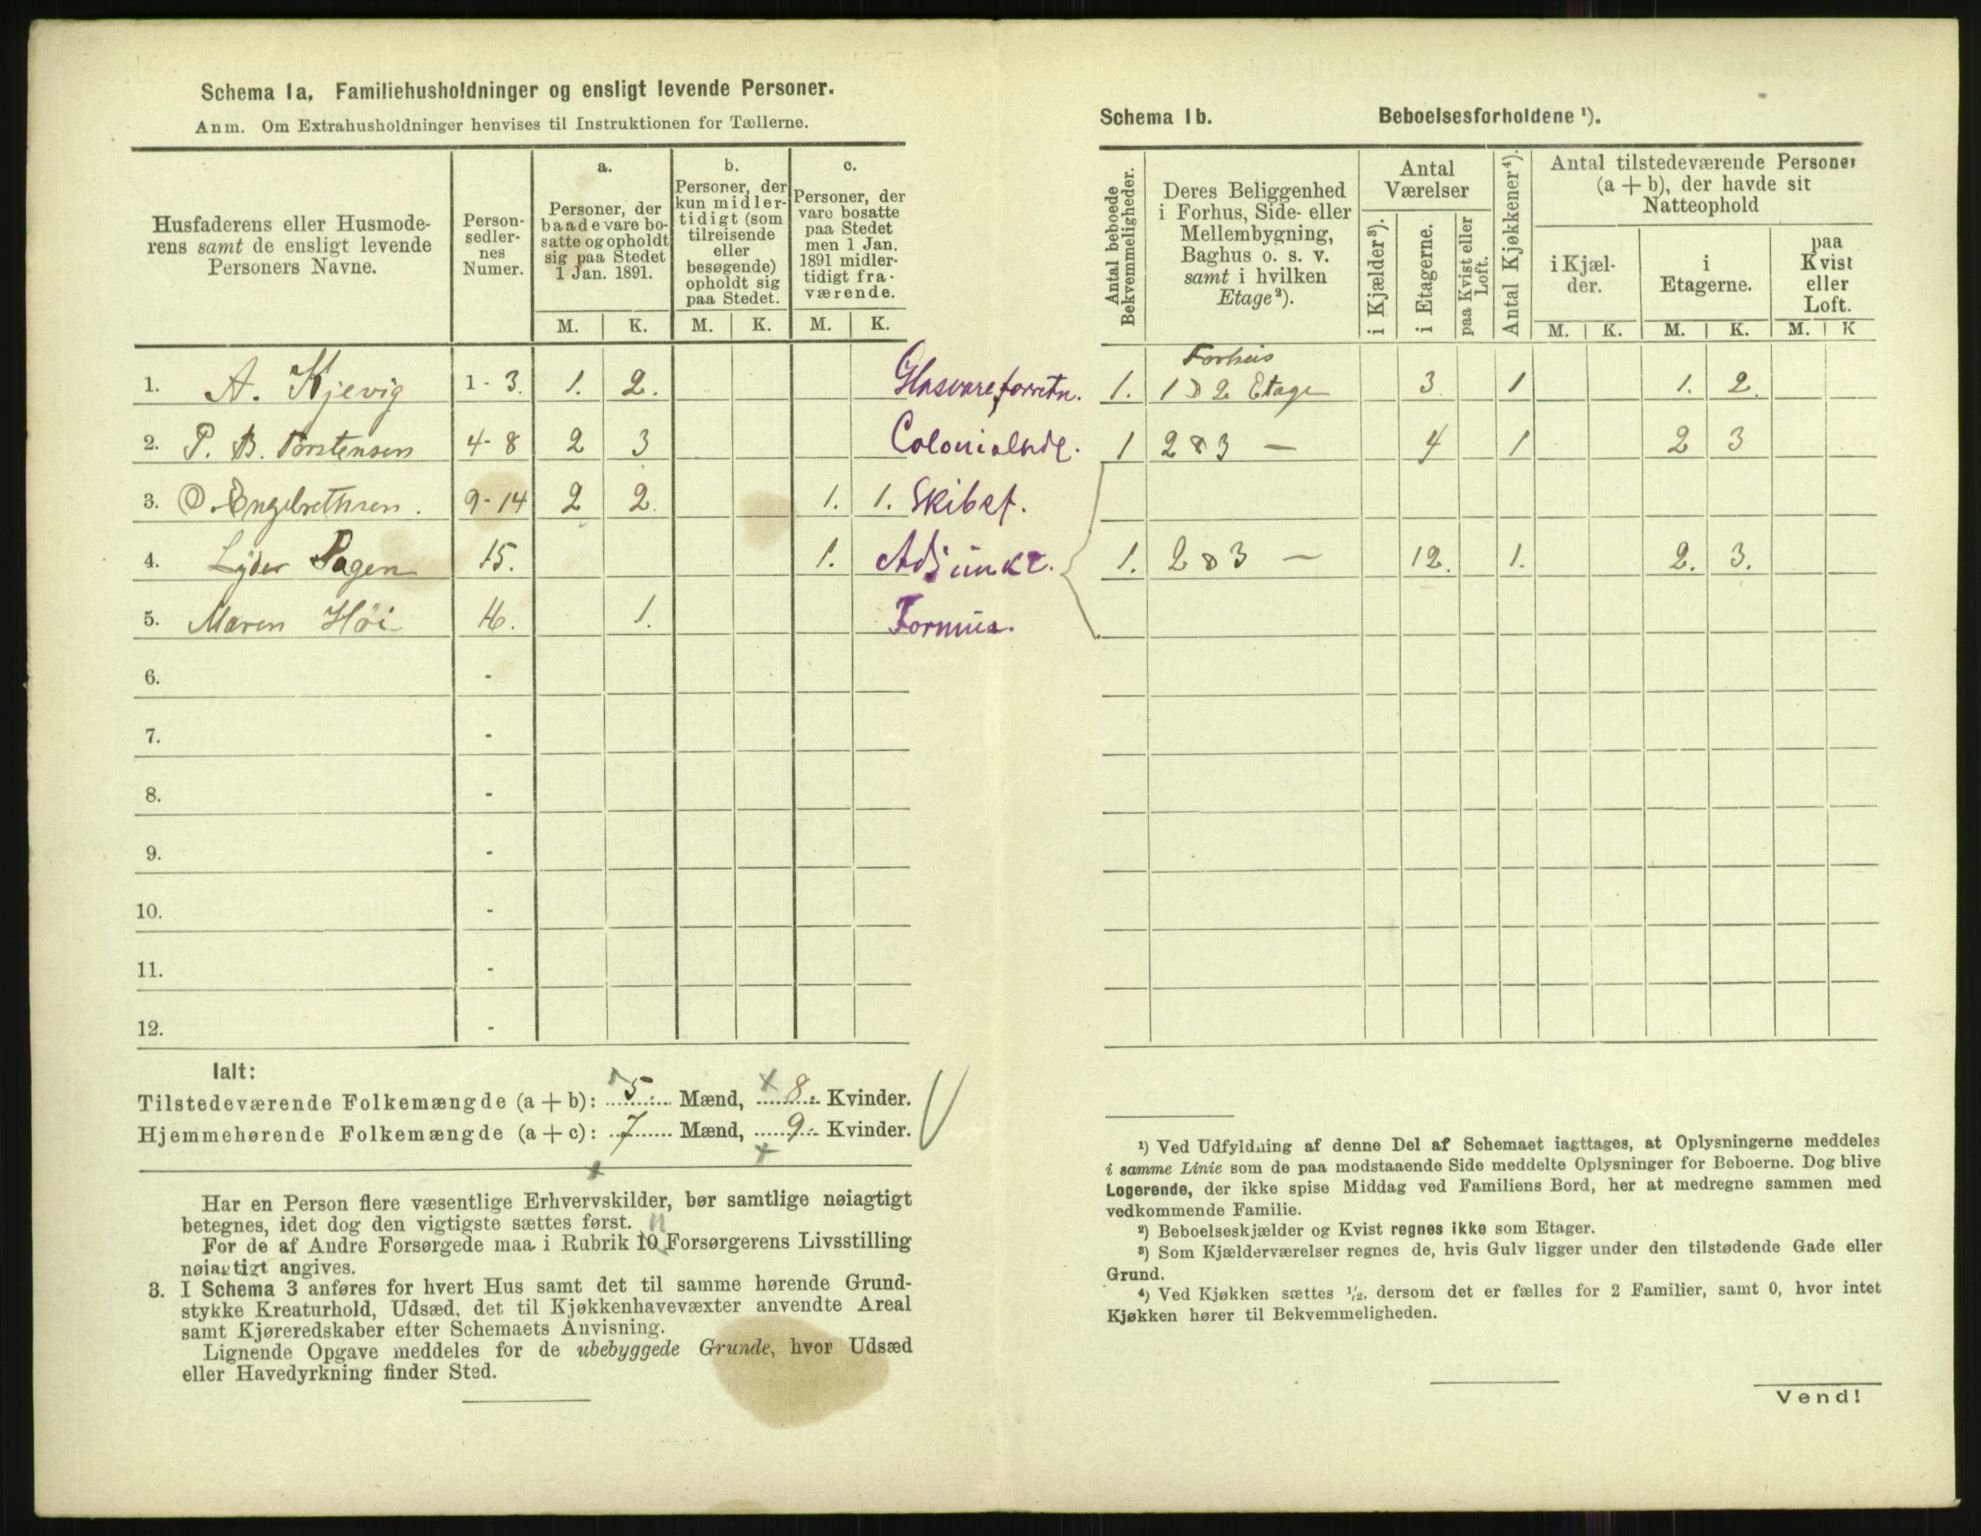 Schema 1a, Familiehusholdninger og ensligt levende Personer.
Anm. Om Extrahusholdninger henvises til Instruktionen for Tællerne.
Husfaderens eller Husmode-
rens samt de ensligt levende
Personers Navne.
Person-
sedler-
nes
Numer.
a.
Personer, der
baade vare bo-
satte og opholdt
sig paa Stedet
1 Jan. 1891.
b.
Personer, der
kun midler-
tidigt (som
tilreisende
eller
besøgende)
opholdt sig
paa Stedet.
c.
Personer, der
vare bosatte
paa Stedet
men 1 Jan.
1891 midler-
tidigt fra-
værende.
M. K. M. K. M. K.
1. A. Kjevig 1 - 3. 1. 2. Glasvareforretn.
2. P. B. Torstensen 4 - 8 2 3 Colonialhdl.
3. O. Engelrethsen. 9 - 14 2 2 1. 1. Skibsf.
4. Lyder Sagen 15. 1. Adjunkt.
5. Maren Høi 16. 1. Formue.
6. -
7. -
8. -
9. -
10. -
11. -
12. -
Ialt:
Tilstedeværende Folkemængde (a + b): 5. Mænd, 8. Kvinder.
Hjemmehørende Folkemængde (a + c): 7 Mænd, 9. Kvinder.
Har en Person flere væsentlige Erhvervskilder, bør samtlige nøiagtigt
betegnes, idet dog den vigtigste sættes først.
For de af Andre Forsørgede maa i Rubrik 10 Forsørgerens Livsstilling
nøiagtigt angives.
3. I Schema 3 anføres for hvert Hus samt det til samme hørende Grund-
stykke Kreaturhold, Udsæd, det til Kjøkkenhavevæxter anvendte Areal
samt Kjøreredskaber efter Schemaets Anvisning.
Lignende Opgave meddeles for de ubebyggede Grunde, hvor Udsæd
eller Havedyrkning finder Sted.
Schema 1b. Beboelsesforholdene ¹).
Antal beboede
Bekvemmeligheder.
Deres Beliggenhed
i Forhus, Side- eller
Mellembygning,
Baghus o. s. v.
samt i hvilken
Etage²).
Antal
Værelser
i Kjælder³).
i Etagerne.
paa Kvist eller
Loft.
Antal Kjøkkener⁴).
Antal tilstedeværende Personer
(a + b), der havde sit
Natteophold
i Kjæl-
der.
i
Etagerne.
paa
Kvist
eller
Loft.
M. K. M. K. M. K
Forhus
1. 1 & 2 Etage 3 1 1. 2.
1 2 & 3 — 4 1 2 3
1. 2 & 3 — 12. 1. 2. 3.
¹) Ved Udfyldning af denne Del af Schemaet iagttages, at Oplysningerne meddeles
i samme Linie som de paa modstaaende Side meddelte Oplysninger for Beboerne. Dog blive
Logerende, der ikke spise Middag ved Familiens Bord, her at medregne sammen med
vedkommende Familie.
²) Beboelseskjælder og Kvist regnes ikke som Etager.
³) Som Kjælderværelser regnes de, hvis Gulv ligger under den tilstødende Gade eller
Grund.
⁴) Ved Kjøkken sættes ¹/₂, dersom det er fælles for 2 Familier, samt 0, hvor intet
Kjøkken hører til Bekvemmeligheden.
Vend!